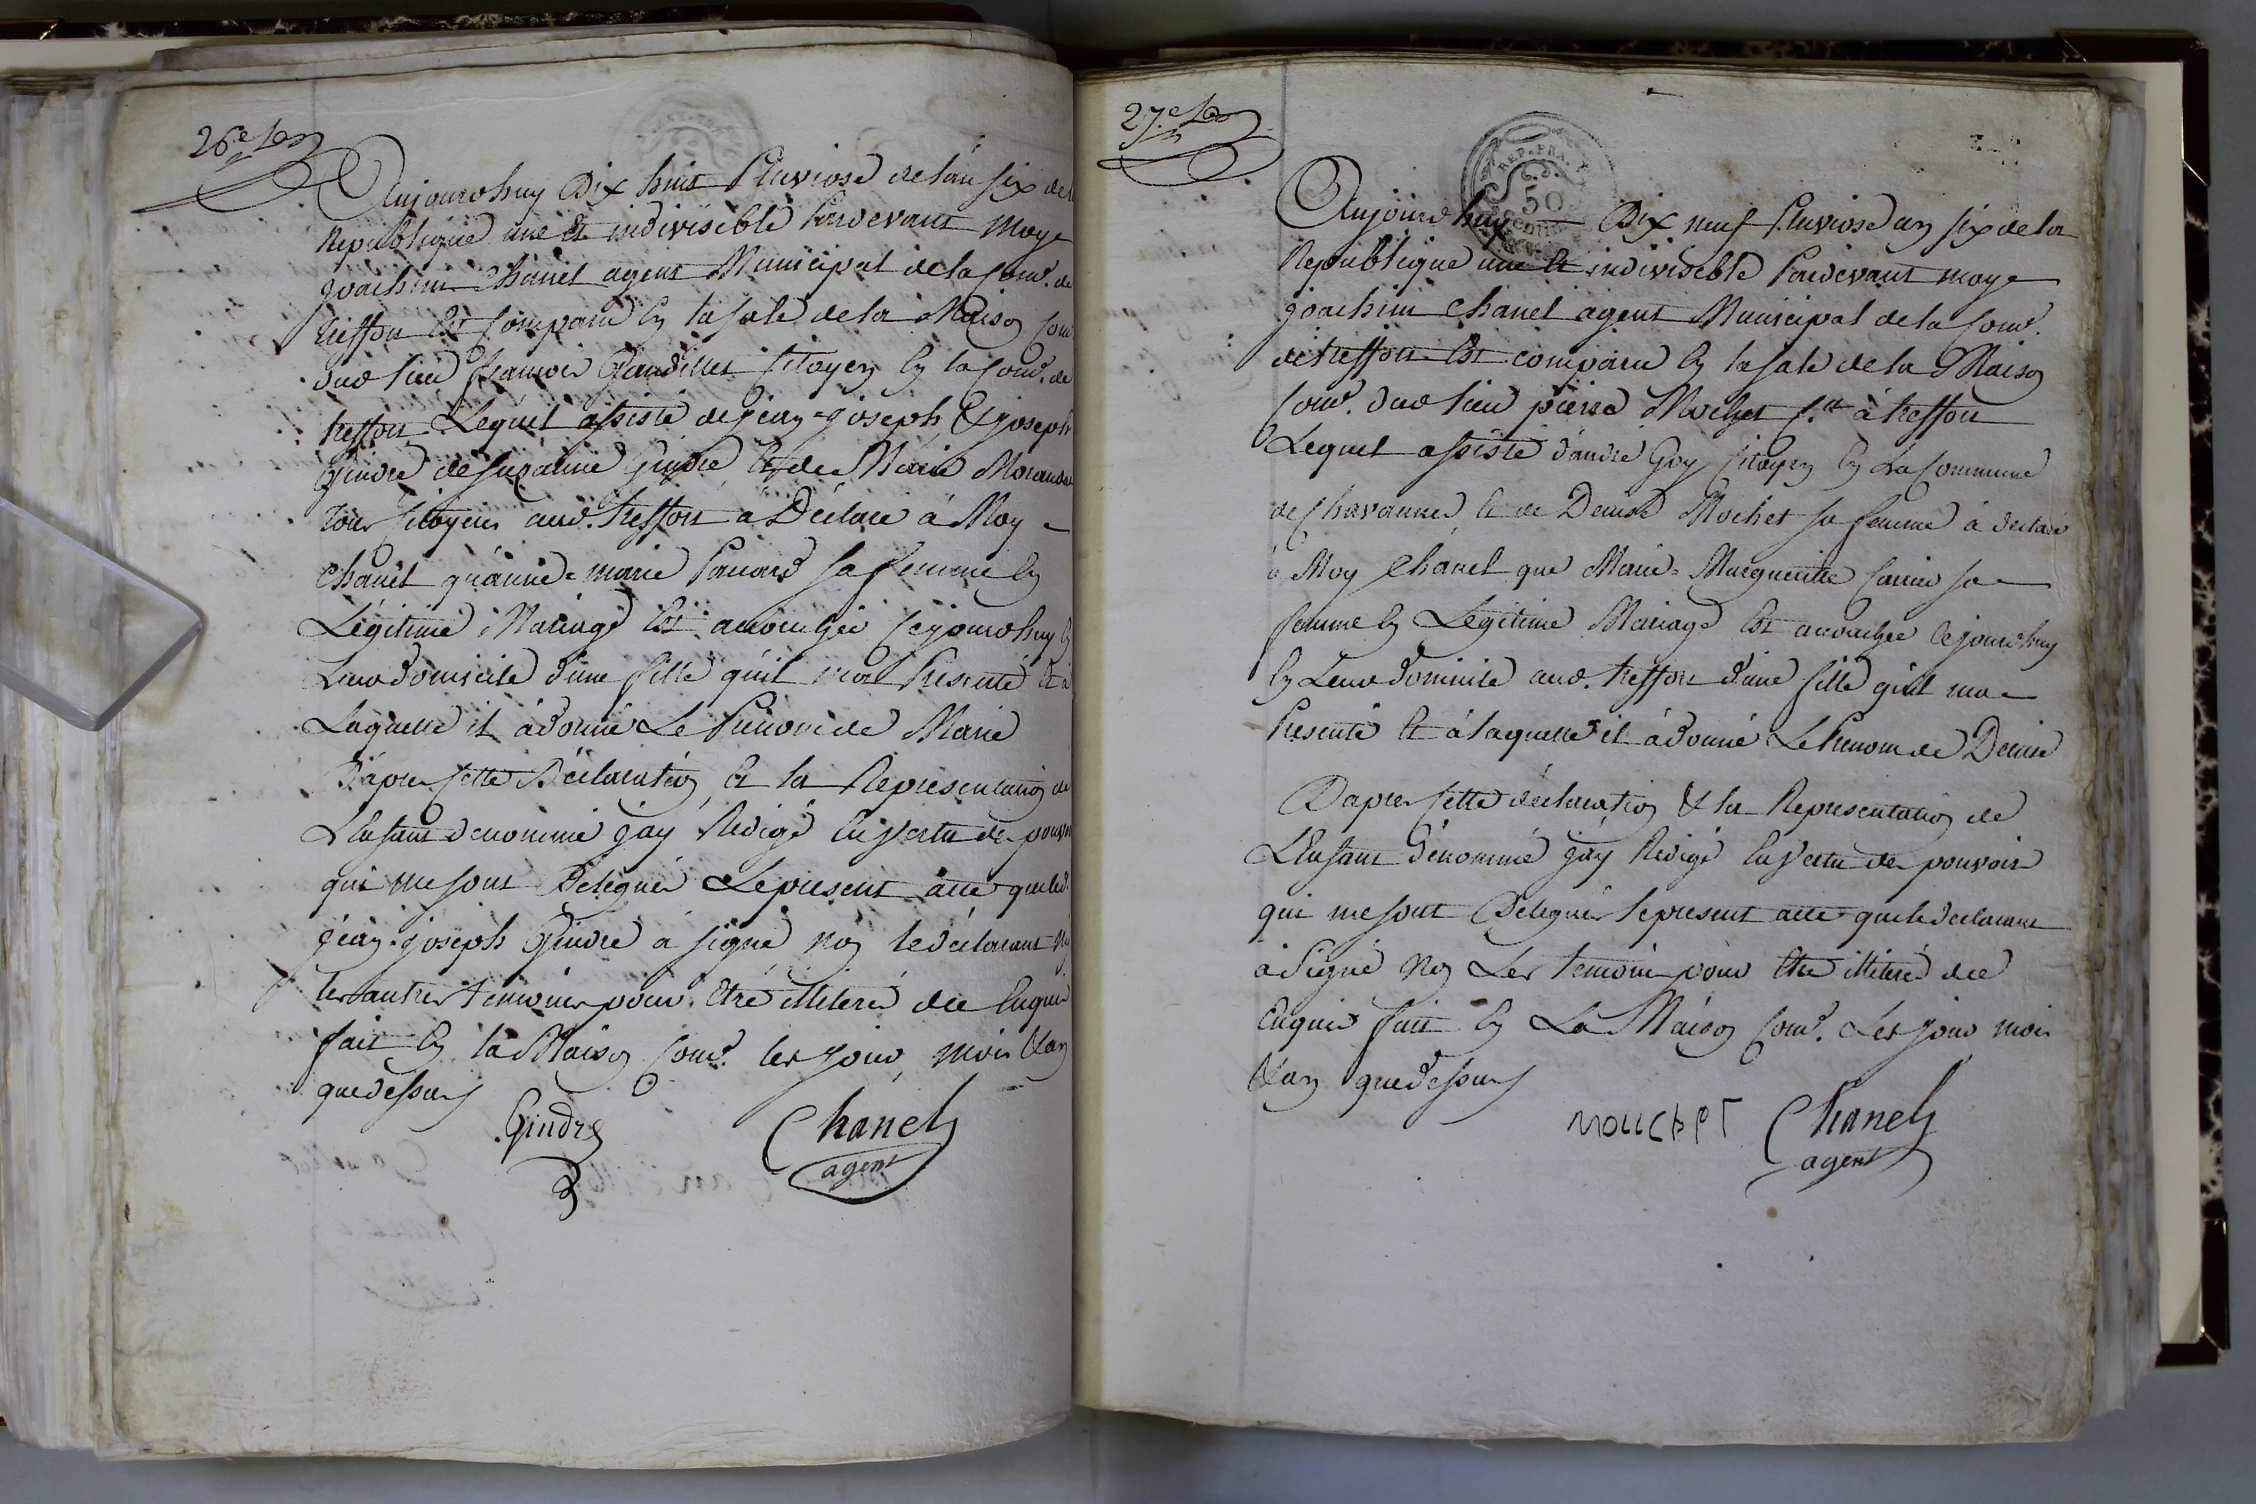 26.e
Aujourdhuy Dix huit Pluviose de lán six de
Republique une et indivisible Pardevant Moy
Joachim Chanel agent Municipal de la Com.e de
treffort Est Comparu En la sale de la Maison Com
dud lieu francois Gaudillet Citoyen En la Com.e de
treffort Lequel assisté de jéan=joseph & joseph
Gindre de Suzanne Gindre et de Marie Morand
tous Citoyens aud. treffort a Déclaré á Moy
Chanel qu'anne=marie sa femme En
Légitime Mariage Est accouchée Cejourdhuy En
Leur domicile d'une fille quil ma Presenté et à
Laquelle il à donné Le Prenom de Marie
D'apres Cette Déclaration, et la Representation de
LEnfant denommé jáy Redigé En Vertu des pouvoirs
qui me sont Delegués Le present acte que led.
jéan-joseph Gindre a signé non le déclarant ny
les autres témoins pour Etre illiteré de Enquis
fait En la Maison Com.e les jour, mois &an
que dessus
Gindre Chanel
agent
27.e
REP. FRA.
50
Aujourdhuy Dix neuf Pluviose an six de la
Republique une et indivisible Pardevant moy
Joachim Chanel agent Municipal de la Com.e
de treffort Est comparu En la sale de la Maison
Com.e dud lieu pierre Mochet C.en à treffort
Lequel assisté d'andré Goy Citoyen En La Commune
de Chavannes, et de Denise Mochet sa femme à déclaré
á Moy Chanel que Marie=Marguerite sa
femme En Légitime Mariage Est accouchée Cejourdhuy
En Leur domicile aud. treffort d'une fille quil ma
Presenté et á laquelle il à donné Le Prenom de Denise
Dapres Cette déclaration & la Representation de
LEnfant dénommé jáy Redigé En Vertu des pouvoirs
qui me sont Delegués le present acte que le déclarant
à Signé Non Les temoins pour Etre illiteré de
Enquis fait En La Maison Com.e Les jour mois
&an que dessus
Chanel
agent